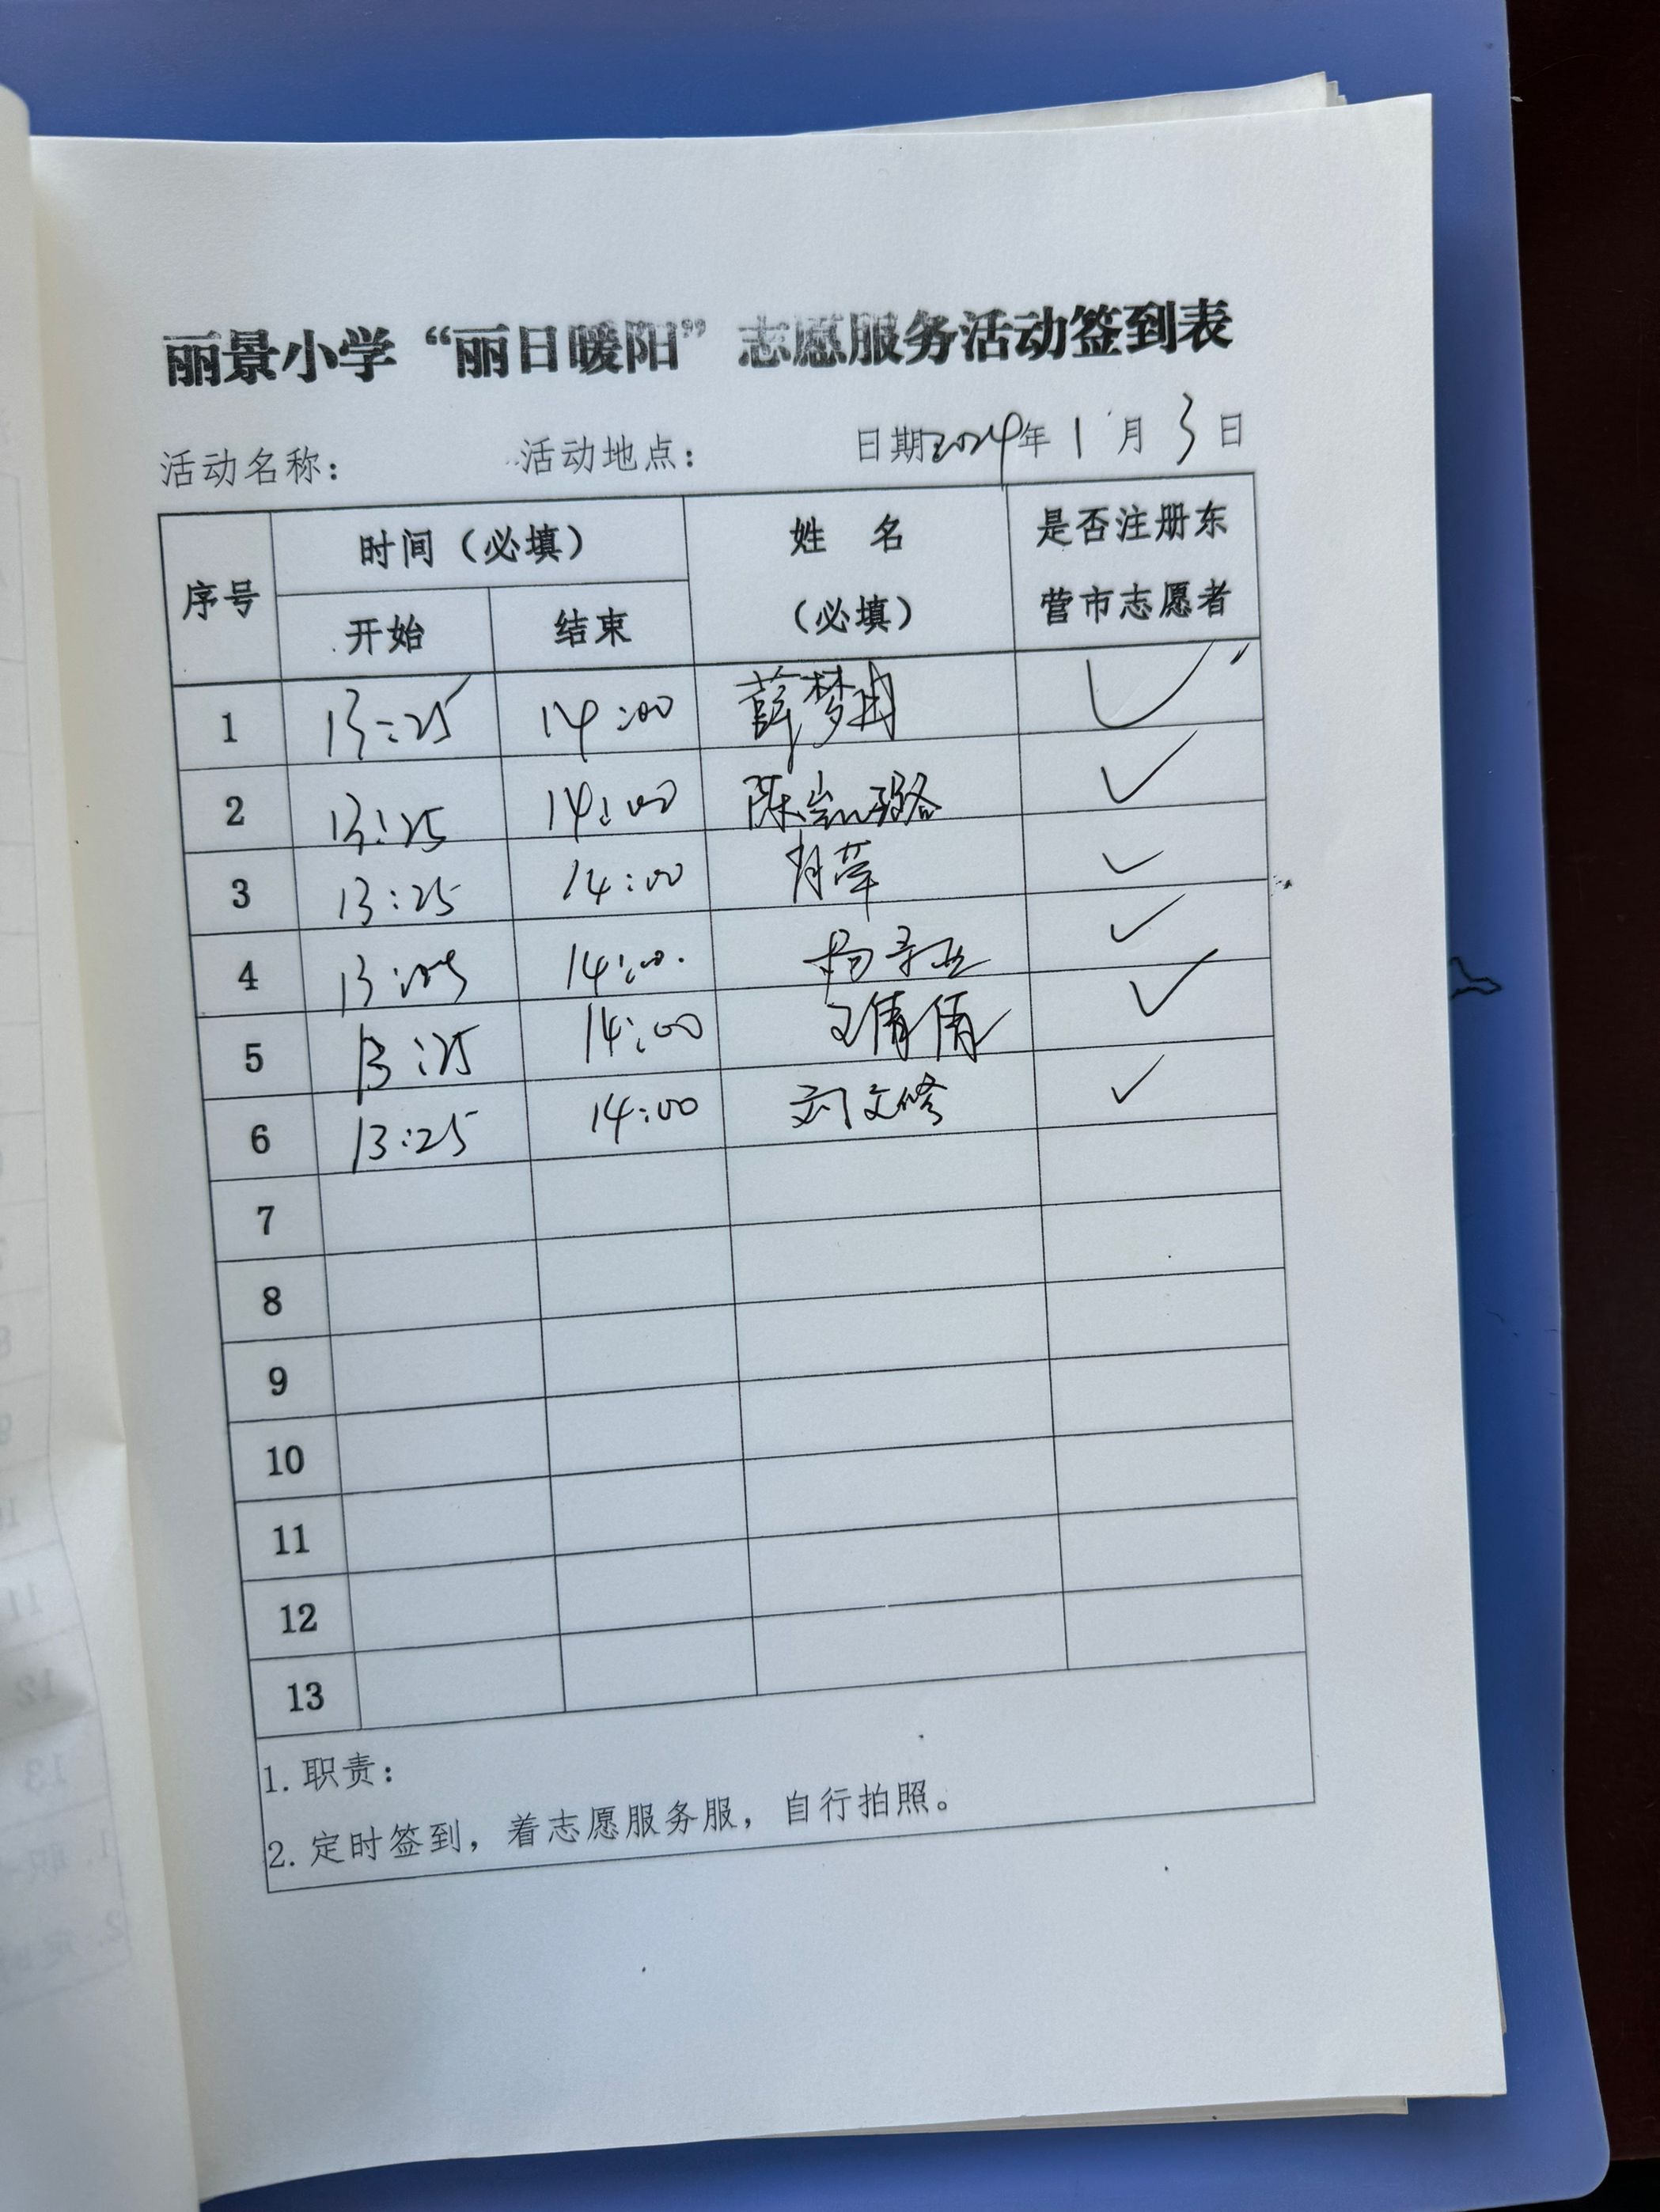 丽景小学“丽日暖阳”志愿服务活动签到表
活动名称： 活动地点： 日期2024年1月3日
序号 时间（必填） 姓 名（必填） 是否注册东营市志愿者
开始 结束
1 13:25 14:00 薛梦冉 ✓
2 13:25 14:00 陈岩璐 ✓
3 13:25 14:00 肖萍 ✓
4 13:25 14:00 ✓
5 13:25 14:00 王倩倩 ✓
6 13:25 14:00 刘文修 ✓
7
8
9
10
11
12
13
1. 职责：
2. 定时签到，着志愿服务服，自行拍照。